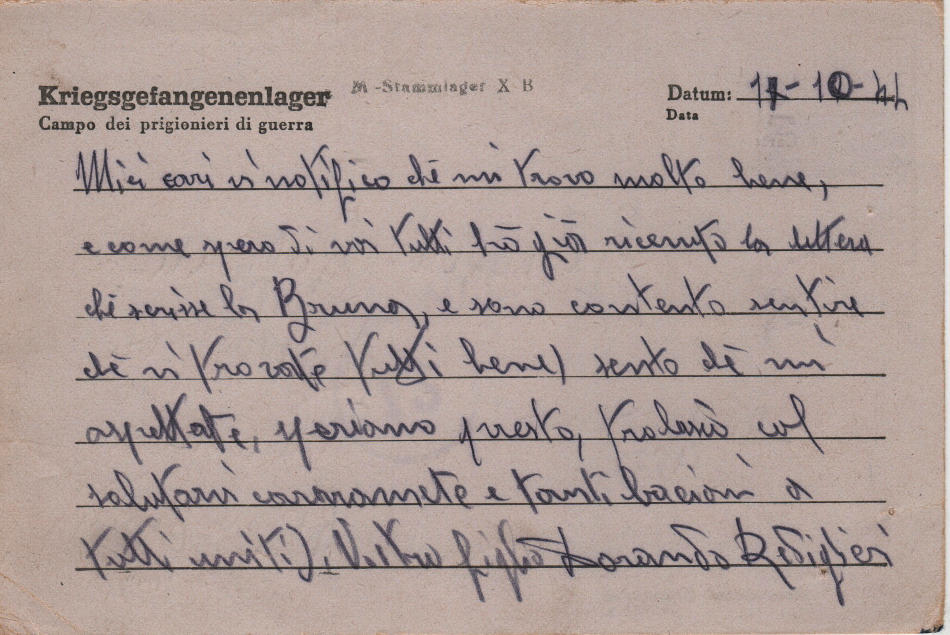 M -Stammlager X B
Kriegsgefangenenlager
Campo dei prigionieri di guerra
Datum: 11-10-44
Data
Miei cari vi notifico che mi trovo molto bene,
e come spero di voi tutti hò già ricevuto la lettera
che scrisse la Bruna, e sono contento sentire
che vi trovate tutti bene, sento che mi
aspettate, speriamo presto, tralascio col
salutarvi cararamete e tanti bacioni a
tutti uniti. Vostro figlio Dorando